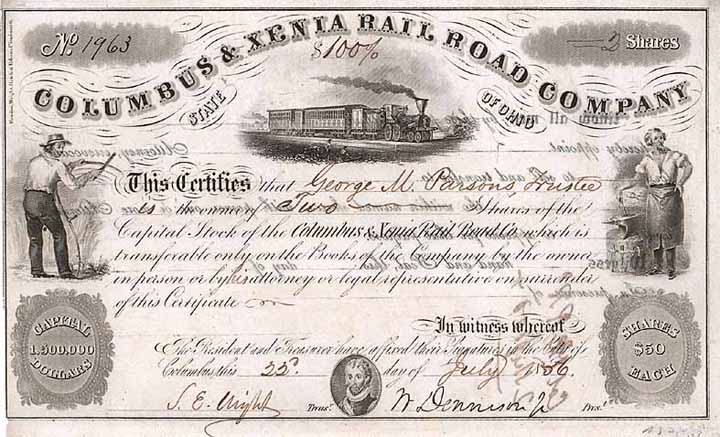 No. 1963
2 Shares
COLUMBUS & XENIA RAIL ROAD COMPANY
$100%
STATE OF OHIO
This Certifies that George M. Parsons, Trustee
is the owner of Two Shares of the
Capital Stock of the Columbus & Xenia Rail Road Co. which is
transferable only on the Books of the Company by the owner
in person or by his attorney or legal representative on surrender
of this Certificate
CAPITAL
1.500.000
DOLLARS
SHARES
$50
EACH
In witness whereof
The President and Treasurer have affixed their Signatures in the City of
Columbus, this 22d day of July 1856
Treasr.
W. Dennison Jr. Prest.